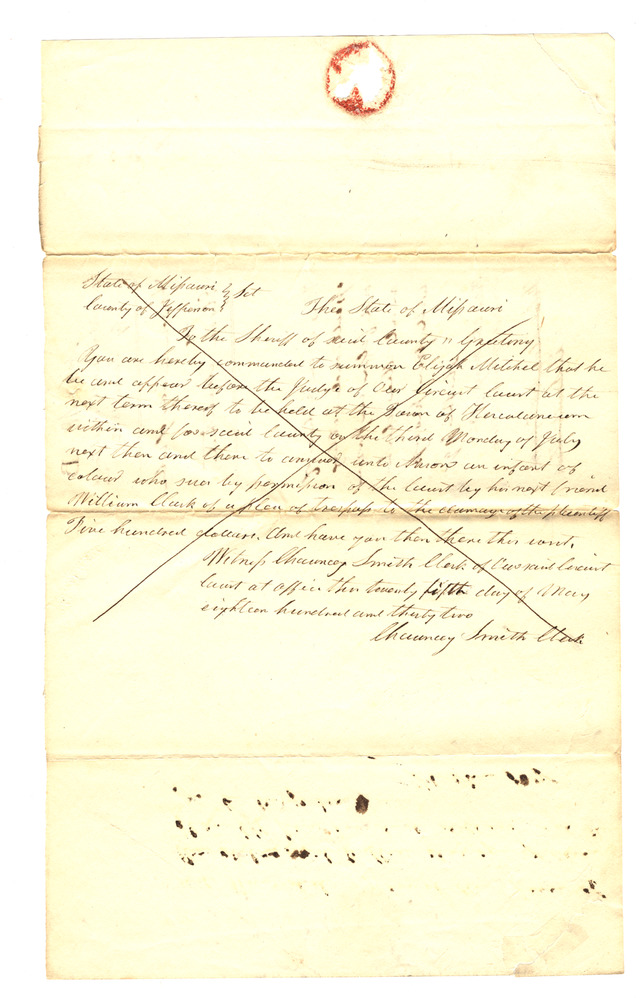 State of Missouri } Sct
County of Jefferson } The State of Missouri
To the Sheriff of said County Greeting
You are hereby commanded to summon Elijah Mitchel that he
be and appear before the Judge of Our Circuit Court at the
next term thereof to be held at the Town of Herculaneum
within and for said County on the third Monday of July
next then and there to answer unto an infant of
colour who sues by permission of the Court by his next friend
William Clark of a plea of trespass to the damage of the plaintiff
Five hundred dollars. And have you then there this writ.
Witness Chauncey Smith Clerk of Our said Circuit
Court at office this twenty fifth day of May
eighteen hundred and thirty two
Chauncey Smith Clerk